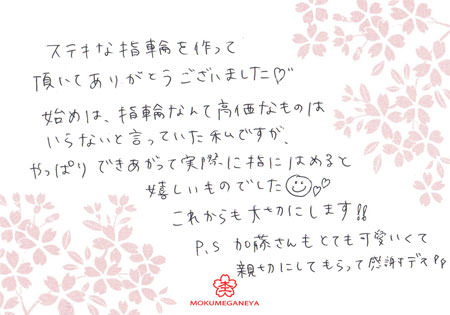 ステキな指輪を作って
頂いてありがとうございました♡
始めは、指輪なんて高価なものは
いらないと言っていた私ですが、
やっぱりできあがって実際に指にはめると
嬉しいものでした
これからも大切にします!!
P.S 加藤さんもとても可愛いくて
親切にしてもらって感謝デス!!
MOKUMEGANEYA